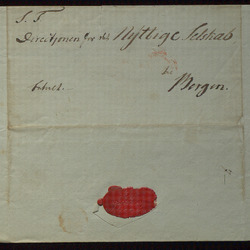 S. T.
Directionen for det Nyttige Selskab
i
Bergen.